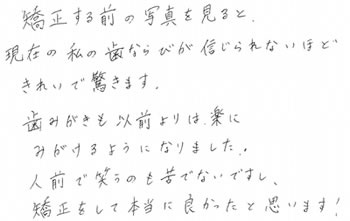 矯正する前の写真を見ると、
現在の私の歯ならびが信じられないほど
きれいで驚きます。
歯みがきも以前よりは、楽に
みがけるようになりました。
人前で笑うのも苦でないですし、
矯正をして本当に良かったと思います!